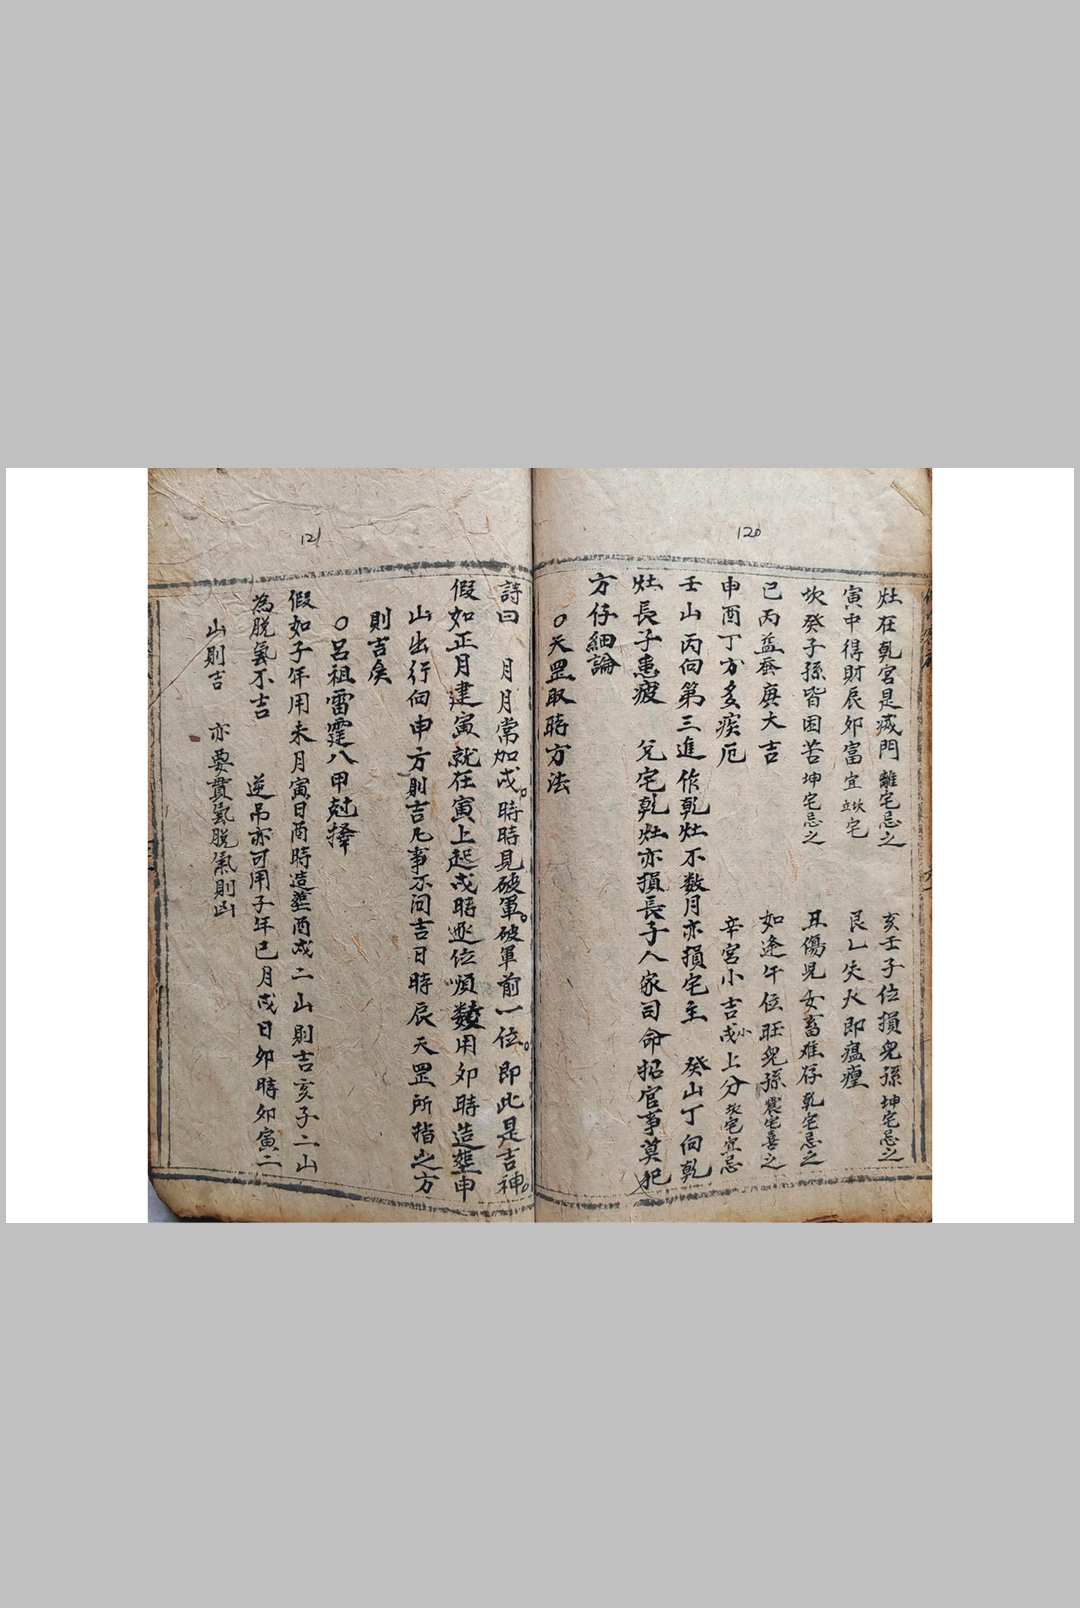 120
灶在乾宮是滅門 離宅忌之 亥壬子位損兒孫 坤宅忌之
寅中得財辰卯富 宜坎立宅 艮乙失火即瘟瘟
坎癸子孫皆困苦 坤宅忌之 丑傷兒女畜难存 乾宅忌之
巳丙益蚕庚大吉 如逢午位旺兒孫 震宅喜之
申酉丁方多疾厄 辛宮小吉戌小上分 坎宅宜忌
壬山丙向第三進作乾灶不数月亦損宅主 癸山丁向乾
灶長子患疲 兌宅乾灶亦損長子人家司命招官事莫犯
方仔細論
○天罡取時方法
121
詩曰 月月常加戌。時時見破軍。破軍前一位。即此是吉神。
假如正月建寅就在寅上起戌時逐位順數用卯時造塟申
山出行向申方則吉凡事不问吉日時辰天罡所指之方
則吉矣
○呂祖雷霆八甲尅擇
假如子年用未月寅日酉時造塟酉戌二山則吉亥子二山
為脱氣不吉 逆吊亦可用子年巳月戌日卯時卯寅二
山則吉 亦要貫氣脱氣則凶